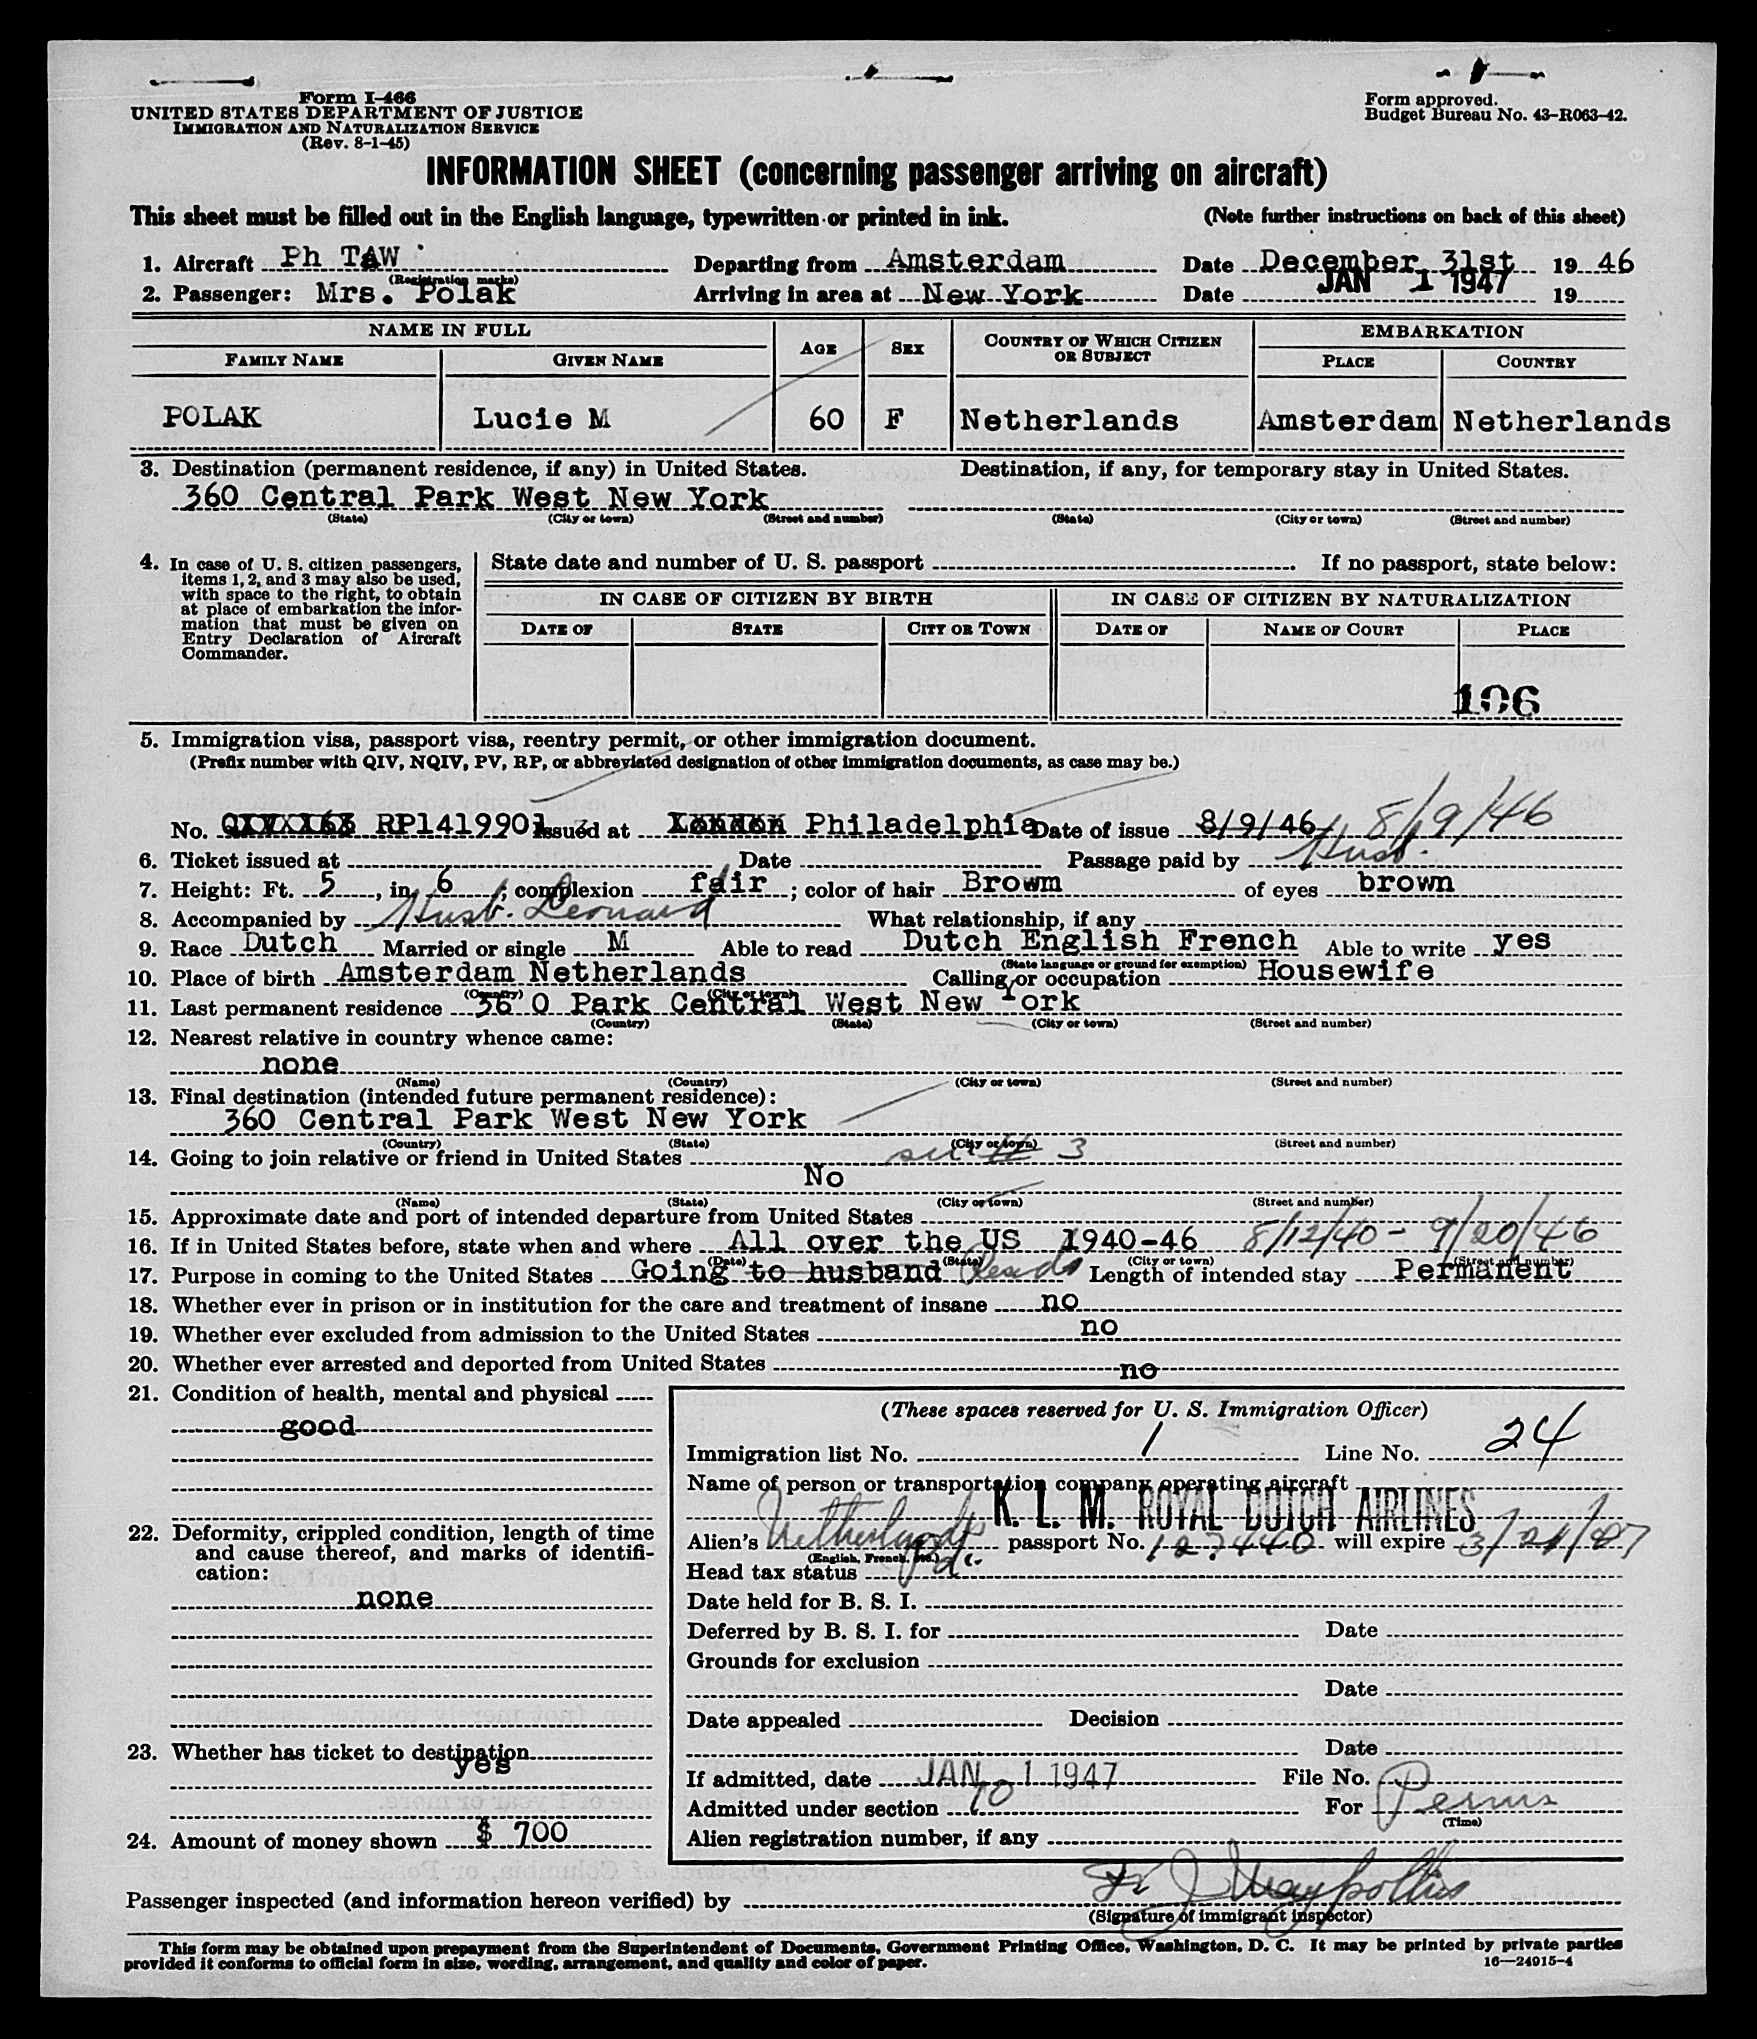 Form I-466
UNITED STATES DEPARTMENT OF JUSTICE
IMMIGRATION AND NATURALIZATION SERVICE
(Rev. 8-1-45)
Form approved.
Budget Bureau No. 43-R063-42.
INFORMATION SHEET (concerning passenger arriving on aircraft)
This sheet must be filled out in the English language, typewritten or printed in ink. (Note further instructions on back of this sheet)
1. Aircraft Ph TAW Departing from Amsterdam Date December 31st 19 46
(Registration marks)
2. Passenger: Mrs. Polak Arriving in area at New York Date JAN 1 1947 19
NAME IN FULL AGE SEX COUNTRY OF WHICH CITIZEN OR SUBJECT EMBARKATION
FAMILY NAME GIVEN NAME PLACE COUNTRY
POLAK Lucie M 60 F Netherlands Amsterdam Netherlands
3. Destination (permanent residence, if any) in United States. Destination, if any, for temporary stay in United States.
360 Central Park West New York
(State) (City or town) (Street and number) (State) (City or town) (Street and number)
4. In case of U. S. citizen passengers, items 1, 2, and 3 may also be used, with space to the right, to obtain at place of embarkation the information that must be given on Entry Declaration of Aircraft Commander.
State date and number of U. S. passport If no passport, state below:
IN CASE OF CITIZEN BY BIRTH IN CASE OF CITIZEN BY NATURALIZATION
DATE OF STATE CITY OR TOWN DATE OF NAME OF COURT PLACE
106
5. Immigration visa, passport visa, reentry permit, or other immigration document.
(Prefix number with QIV, NQIV, PV, RP, or abbreviated designation of other immigration documents, as case may be.)
No. RP1419901 Issued at London Philadelphia Date of issue 8/9/46 8/9/46
6. Ticket issued at Date Passage paid by Husb.
7. Height: Ft. 5, in. 6; complexion fair; color of hair Brown of eyes brown
8. Accompanied by Husb. Leonard What relationship, if any
9. Race Dutch Married or single M Able to read Dutch English French Able to write yes
(State language or ground for exemption)
10. Place of birth Amsterdam Netherlands Calling or occupation Housewife
(Country) (City or town)
11. Last permanent residence 36 0 Park Central West New York
(Country) (State) (City or town) (Street and number)
12. Nearest relative in country whence came:
none
(Name) (Country) (City or town) (Street and number)
13. Final destination (intended future permanent residence):
360 Central Park West New York
(Country) (State) (City or town) (Street and number)
14. Going to join relative or friend in United States 3
No
(Name) (State) (City or town) (Street and number)
15. Approximate date and port of intended departure from United States
16. If in United States before, state when and where All over the US 1940-46 8/12/40 - 9/20/46
(Date) (State) (City or town) (Street and number)
17. Purpose in coming to the United States Going to husband Length of intended stay Permanent
18. Whether ever in prison or in institution for the care and treatment of insane no
19. Whether ever excluded from admission to the United States no
20. Whether ever arrested and deported from United States no
21. Condition of health, mental and physical
good
22. Deformity, crippled condition, length of time and cause thereof, and marks of identification:
none
23. Whether has ticket to destination
yes
24. Amount of money shown $ 700
(These spaces reserved for U. S. Immigration Officer)
Immigration list No. 1 Line No. 24
Name of person or transportation company operating aircraft
K. L. M. ROYAL DUTCH AIRLINES
Alien's Netherlands passport No. 127440 will expire 3/21/47
(English, French, etc.)
Head tax status
Date held for B. S. I.
Deferred by B. S. I. for Date
Grounds for exclusion
Date
Date appealed Decision
Date
If admitted, date JAN 1 1947 File No.
Admitted under section 10 For Perm
(Time)
Alien registration number, if any
Passenger inspected (and information hereon verified) by
(Signature of immigrant inspector)
This form may be obtained upon prepayment from the Superintendent of Documents, Government Printing Office, Washington, D. C. It may be printed by private parties
provided it conforms to official form in size, wording, arrangement, and quality and color of paper.
16—24915-4